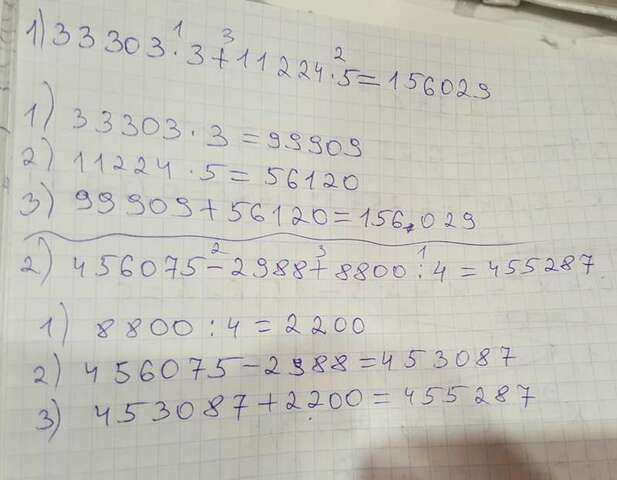 1) 33303 · 3 + 11224 · 5 = 156029
1) 33303 · 3 = 99909
2) 11224 · 5 = 56120
3) 99909 + 56120 = 156.029
2) 456075 - 2988 + 8800 : 4 = 455287
1) 8800 : 4 = 2200
2) 456075 - 2988 = 453087
3) 453087 + 2200 = 455287